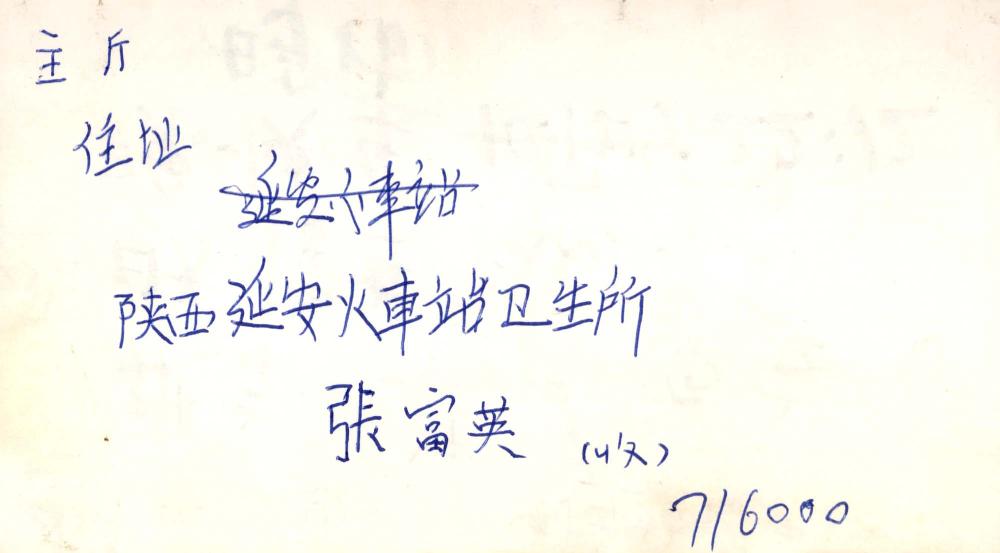 主斤
住址
延安火車站
陕西延安火車站卫生所
張富英（收）
716000